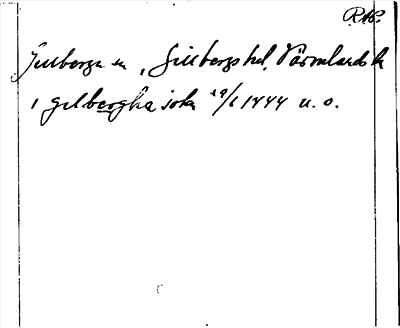 RAP.
Gillberga sn, Gillbergs hd, Värmlands l.
i gilbergha sokn 29/6 1444 u. o.